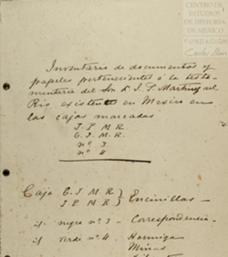 CENTRO DE
ESTUDIOS
DE HISTORIA
DE MEXICO
Inventario de documentos y
papeles pertenecientes á la testa-
mentería del Sor D. J. P. Martinez del
Rio, existentes en Mexico en
las cajas marcadas
J. P. M. R.
G. I. M. R.
nº 3
nº 4
Caja G. I. M. R. } Encinillas
J. P. M. R. }
id. negra nº 3 - Correspondencia
id. verde nº 4 Hormiga
Minas